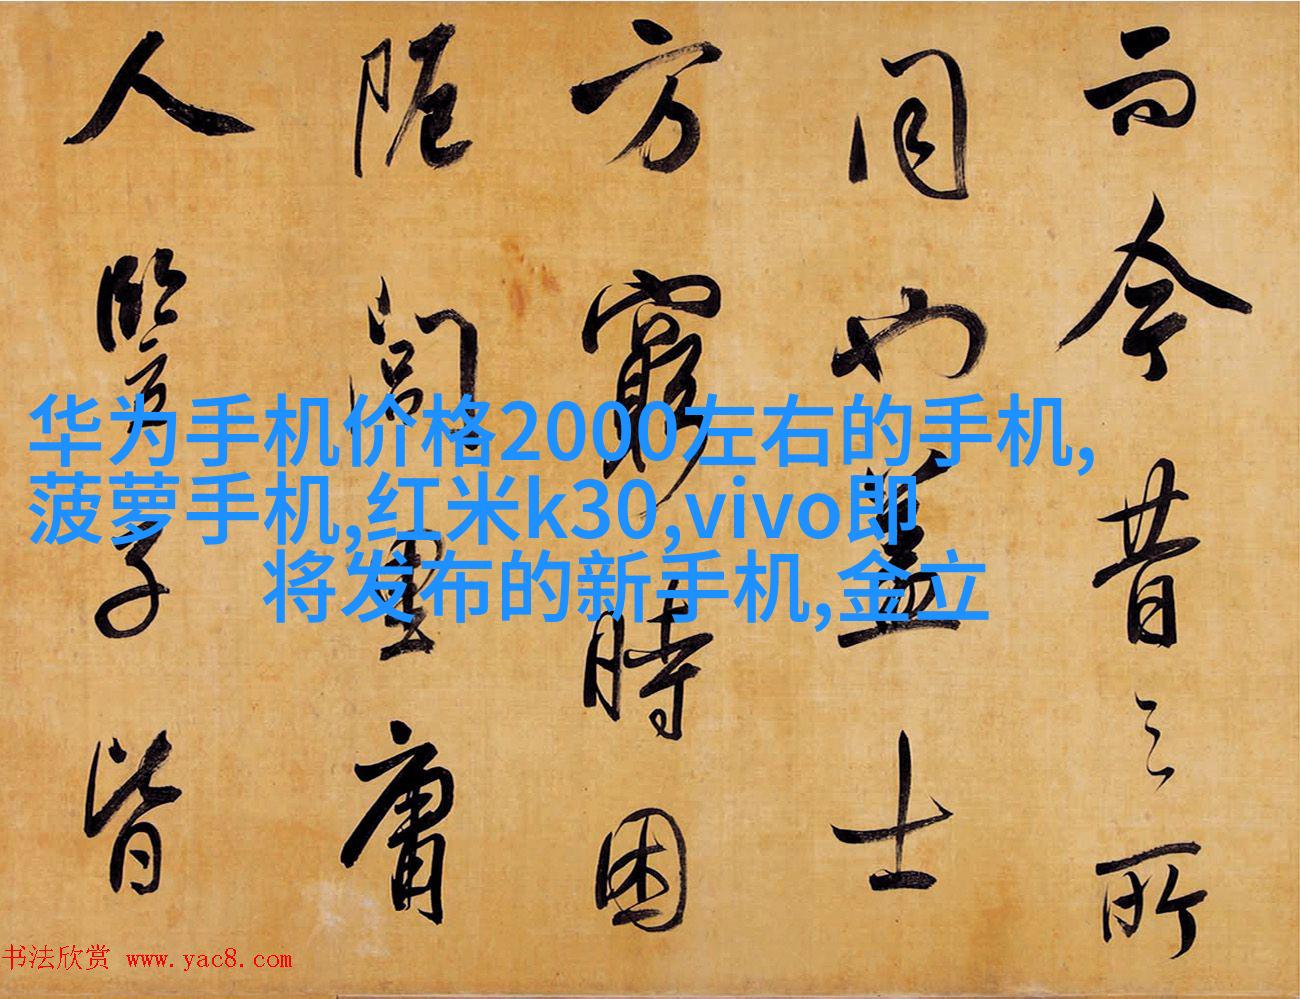 而今昔之所
同也蓋士
方窮時困
阨閭里庸
人豎子皆
华为手机价格2000左右的手机,
菠萝手机,红米k30,vivo即
将发布的新手机,金立
书法欣赏 www.yac8.com